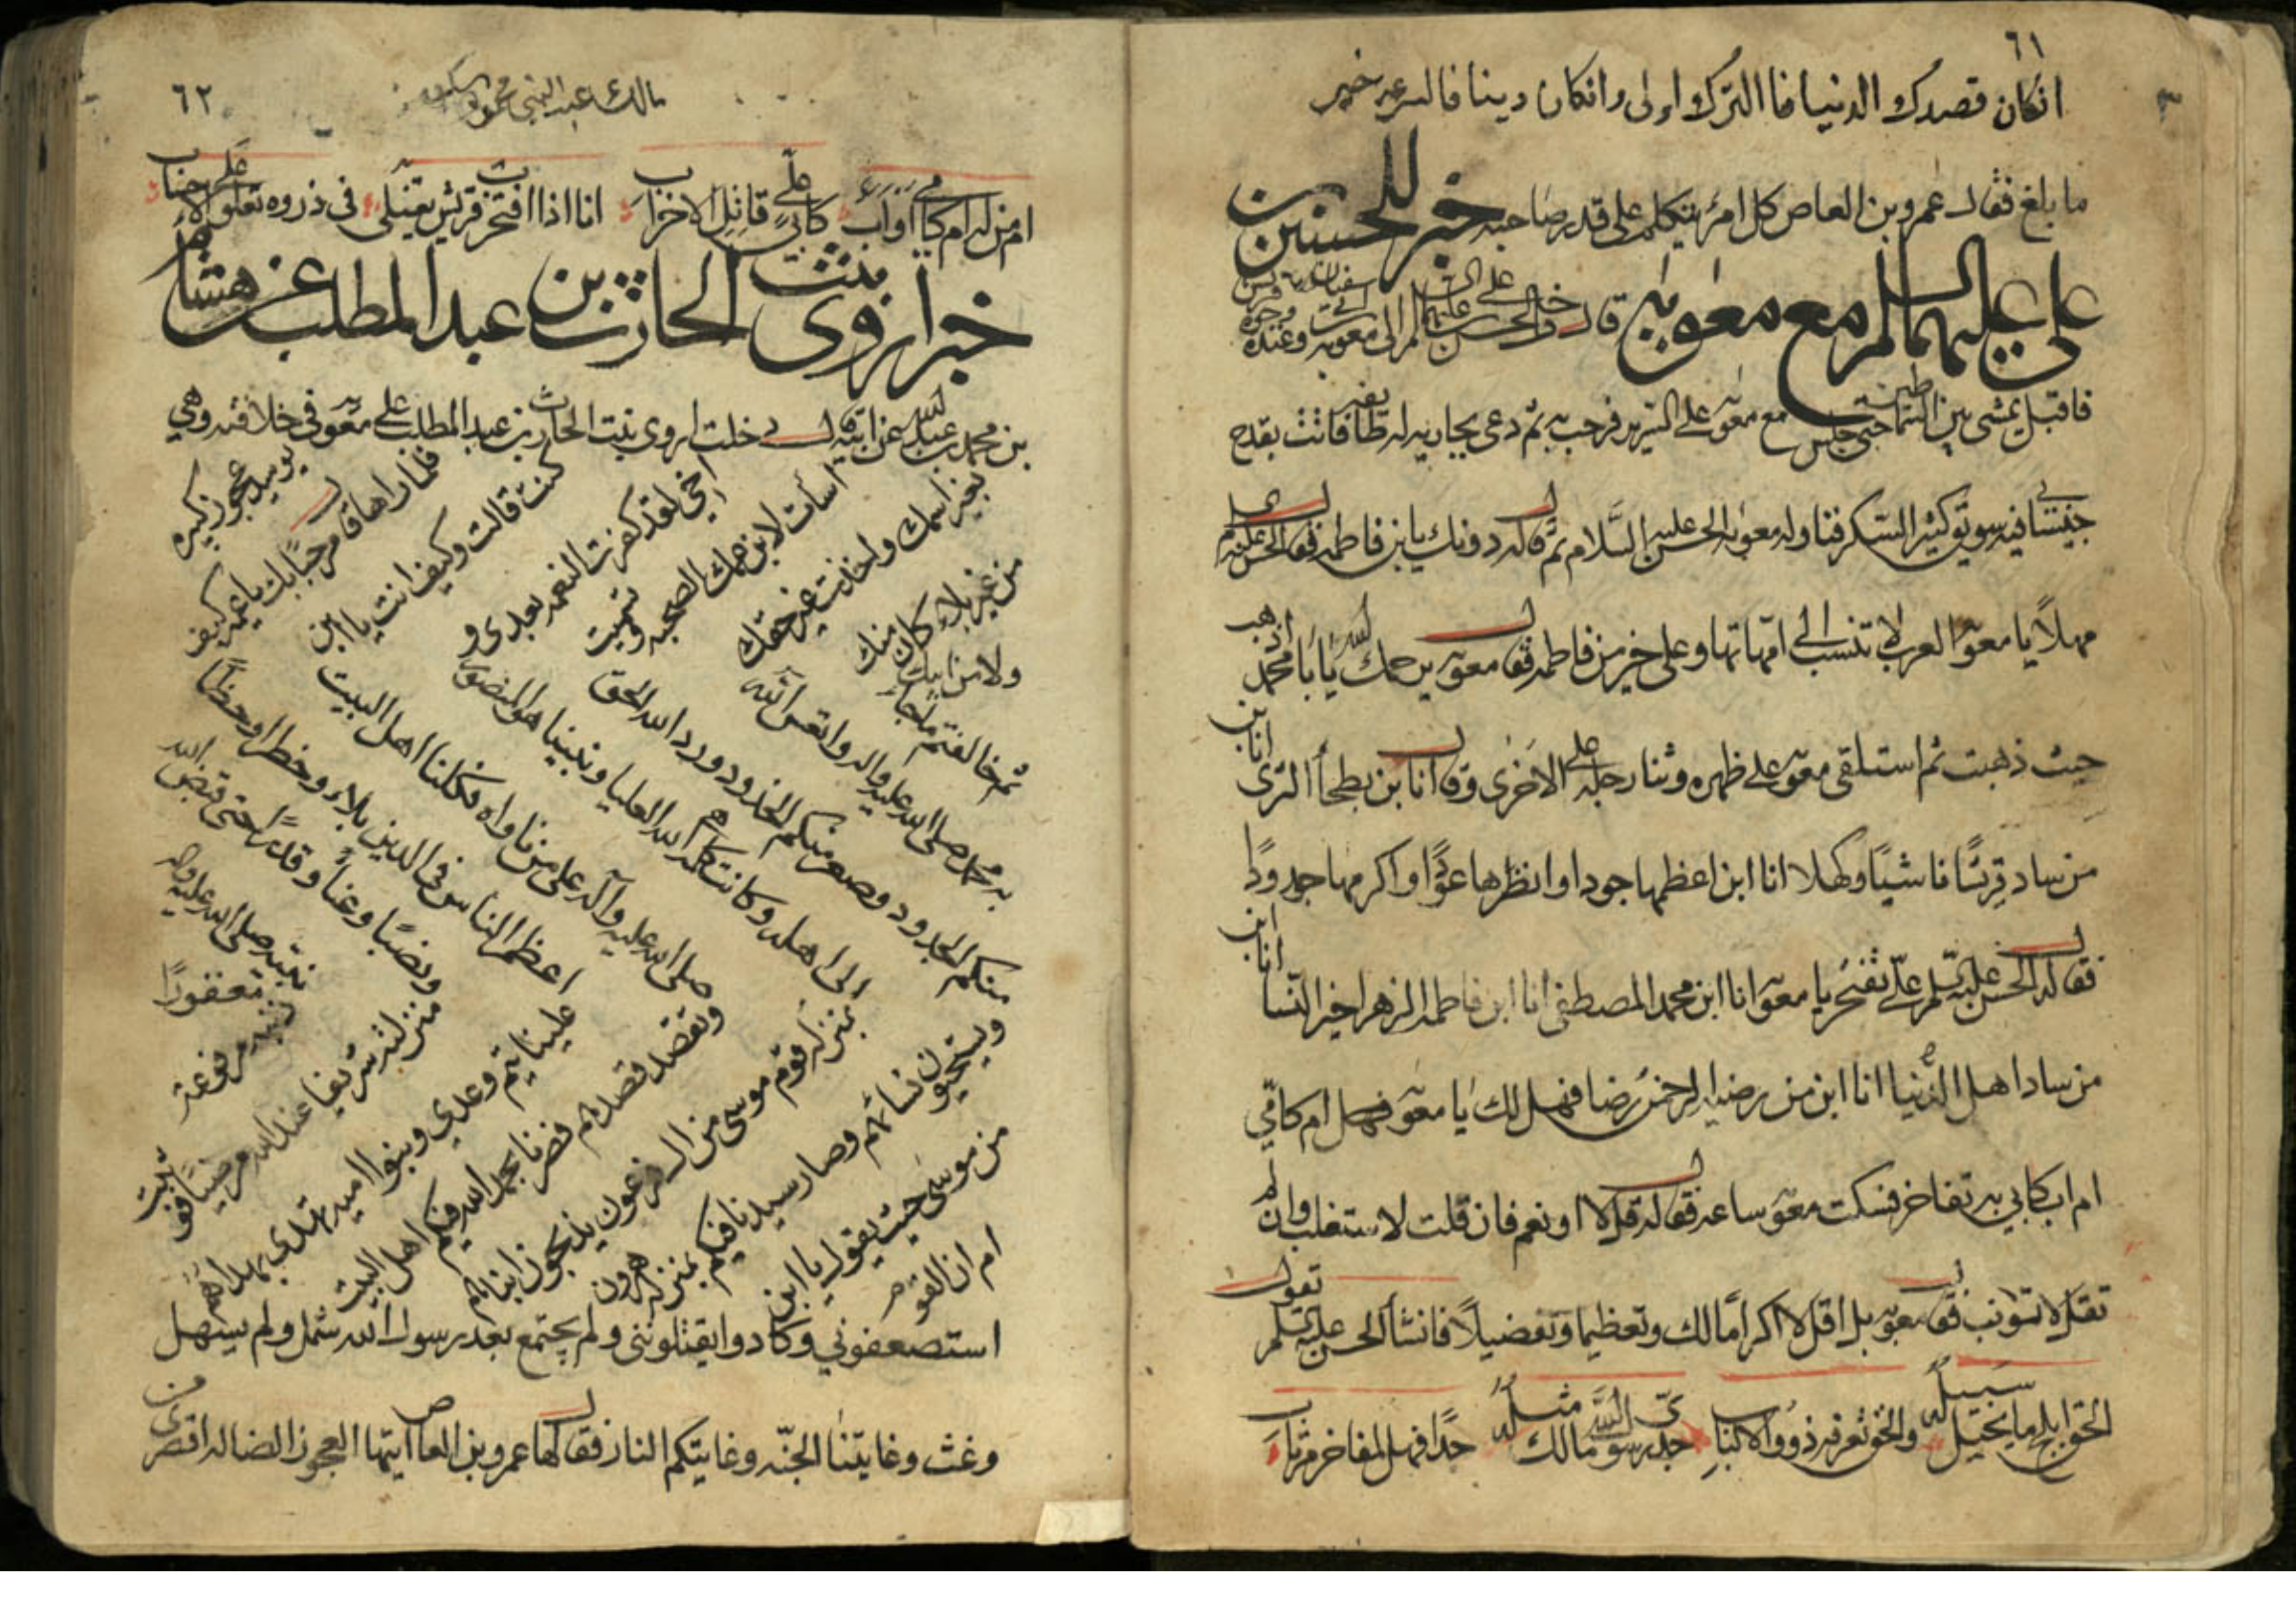 ٦١
انكان قصدك الدنيا فا الترك اولى وانكان دينا فالسرعه خير
ما بلغ فقال عمرو بن العاص كل امرء يتكلم على قدر صاحبه خبر للحسن بن
علي عليهما السلم مع معويه قال دخل الحسن بن علي عليهما السلم الى معويه وعنده
فاقبل يمشي بين السماطين حتى جلس مع معويه على السرير فرحب به ثم دعى بجاريه له فاتت بقدح
فيه سويق كثير السكر فناوله معويه الحسن عليه السلام ثم قال له دونك يا بن فاطمه فقال الحسن عليه السلم
مهلاً يا معويه العرب لا تنسب الى امهاتها وعلي خير من فاطمه فقال معويه يرحمك الله يا با محمد اذهب
حيث ذهبت ثم استلقى معويه على ظهره وثنا رجله على الاخرى وقال انا بن بطحا الثرى انا بن
من ساد قريشًا فاشيبًا وكهلا انا ابن اعظمها جودا وانظرها عودًا واكرمها جدودًا
فقال له الحسن عليه السلم علي تفتخر يا معويه انا ابن محمد المصطفى انا ابن فاطمه الزهرا خير النسا انا ابن
من ساد اهل الدنيا انا ابن من رضيه الرحمن رضا فهل لك يا معويه فهل ام كامي
ام اب كابي به تفاخر فسكت معويه ساعه فقال له قل لا او نعم فان قلت لا ستغلب وان لم
تقل لا تتوانب فقال معويه بل اقول لا اكرامًا لك وتعظيما وتفضيلاً فانشا الحسن عليه السلم يقول
الحق ابلج ما يخيل سبيله والحق تعرفه ذووا الالباب جدي رسول الله مالك مثله جدًا فهل لمفاخر مرتاب
٦٢
مالك عبد النبي
ام من له ام كامي او اب كابي علي قاتل الاحزاب انا اذا افتخر قريش يعتلي في ذروه تعلو على الاحناب
خبر اروى بنت الحارث بن عبد المطلب عن هشام
بن محمد بن عبد الله عن ابيه قال دخلت اروى بنت الحارث بن عبد المطلب على معويه في خلافته وهي
يوميذ عجوز كبيره
فلما راها قال مرحبًا بك يا عمه كيف
كنت قالت وكيف انت يا ابن
اخي لقد كفرت النعمه بعدي و
اسأت لابن عمك الصحبه وتسميت
بغير اسمك واخذت غير حقك
من غير بلاء كان منك
ولا من ابيك
ثم خالفتم ما جاء
به محمد صلى الله عليه واله واتعس الله
منكم الجدود وصعر منكم الخدود ورد الله الحق
الى اهله وكانت كلمه الله العليا ونبينا هو المنصور
صلى الله عليه وآله على من ناواه فكلنا اهل البيت
اعظم الناس في الدين بلاء وخطرا وحظًا
ونصيبًا وغناً وقدرًا حتى قبض الله
نبيه صلى الله عليه واله
مغفورًا
ذنبه مرفوعة
منزلته شريفا عند الله مرضيًا فوثبت
علينا تيم وعدي وبنوا اميه تهتدي بهداهم
وتقصد قصدهم فصرنا بحمد الله فيكم اهل البيت
بمنزله قوم موسى من ال فرعون يذبحون ابنائهم
ويستحيون نسائهم وصار سيدنا فيكم بمنزله هرون
من موسى حيث يقول يا ابن
ام ان القوم
استضعفوني وكادوا يقتلونني ولم يجتمع بعد رسول الله شمل ولم يسهل
وغث وغايتنا الجنه وغايتكم النار فقال لها عمرو بن العاص ايتها العجوز الضاله اقصري من